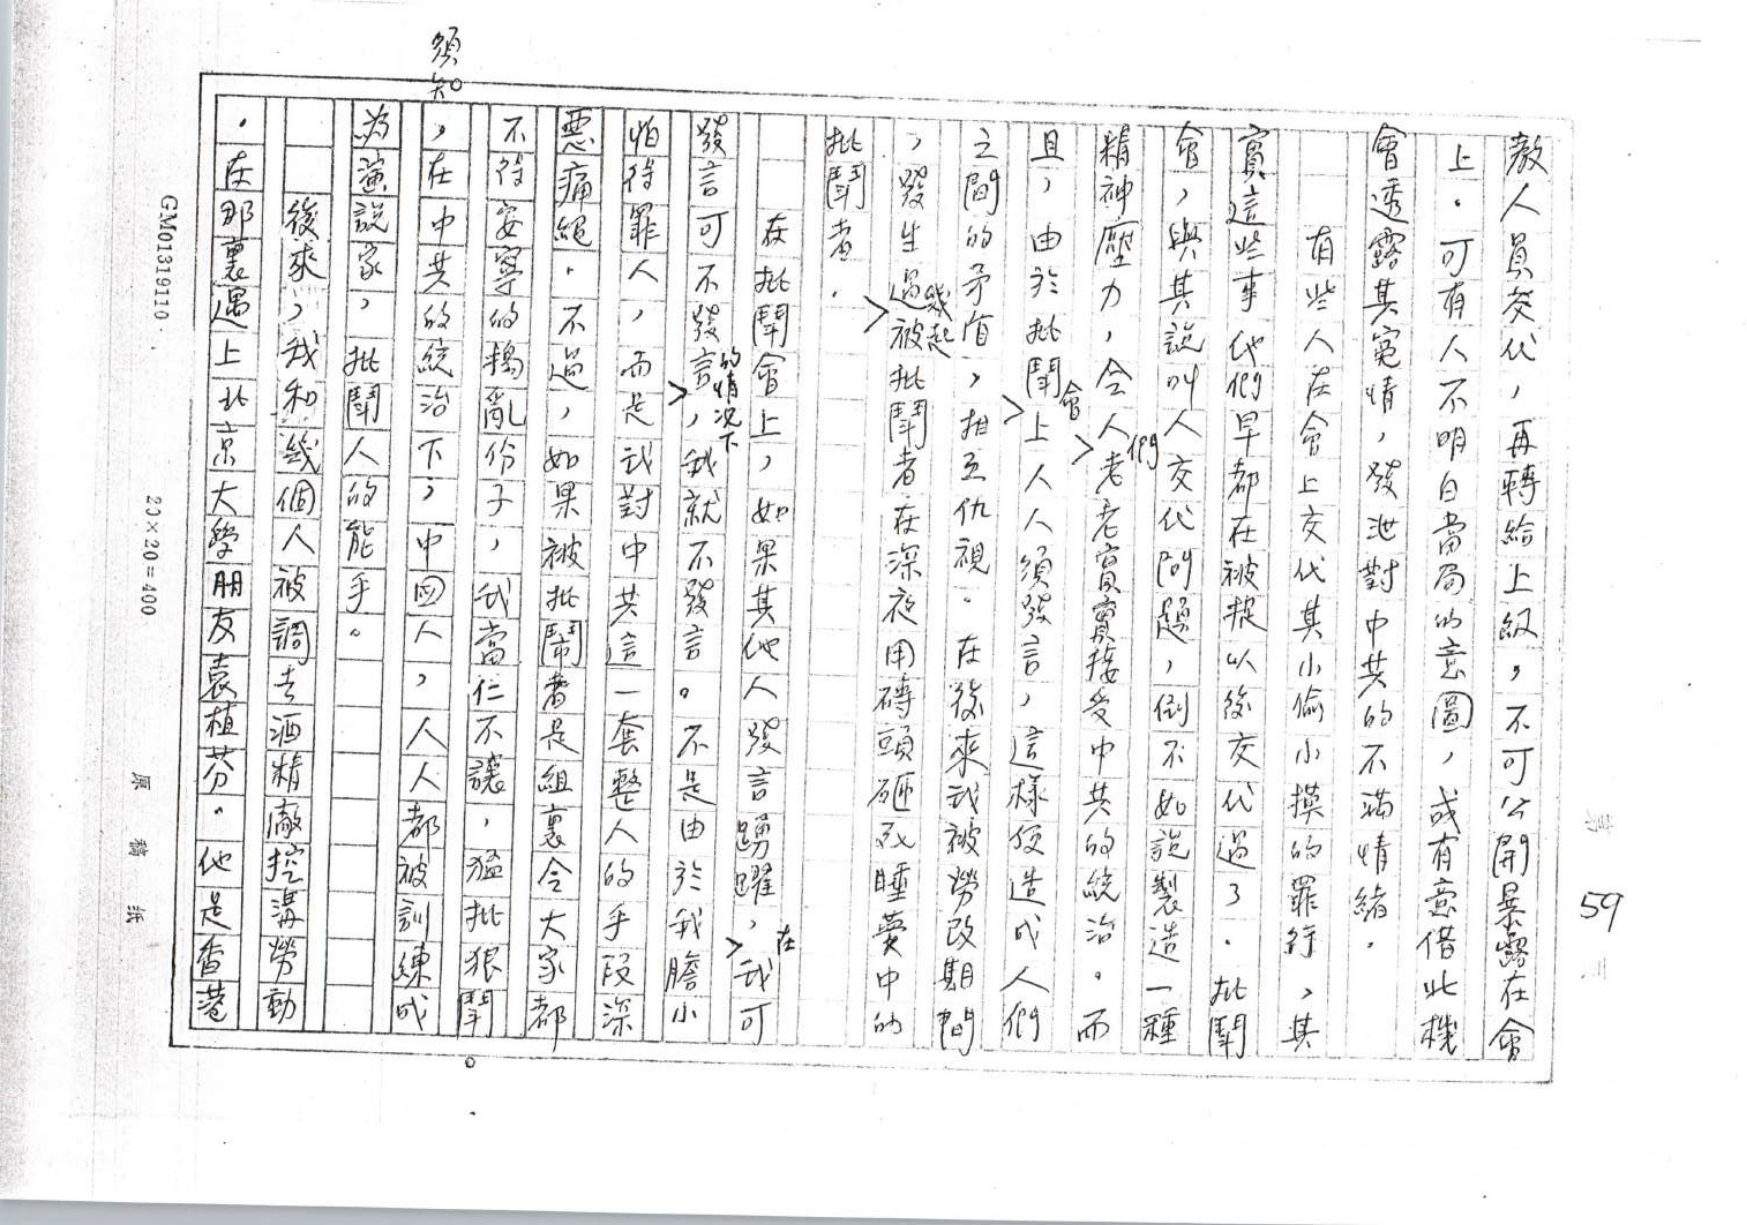 59
教人員交代，再轉給上級，不可公開暴露在會
上．可有人不明白當局的意圖，或有意借此機
會透露其冤情，發泄對中共的不滿情緒．
有些人在會上交代其小偷小摸的罪行，其
實這些事他們早都在被捉以後交代過了．批鬥
會，與其說叫人交代問題，倒不如說製造一種
精神壓力，令人們老老實實接受中共的統治。而
且，由於批鬥會上人人須發言，這樣便造成人們
之間的矛盾，相互仇視。在後來我被勞改期間
，發生過幾起被批鬥者在深夜用磚頭砸死睡夢中的
批鬥者．
在批鬥會上，如果其他人發言踴躍，在我可
發言可不發言的情況下，我就不發言。不是由於我膽小
怕得罪人，而是我對中共這一套整人的手段深
惡痛絕．不過，如果被批鬧者是組裏令大家都
不得安寧的搗亂份子，我當仁不讓，猛批狠鬥。
須知，在中共的統治下，中国人，人人都被訓練成
為演説家，批鬥人的能手。
後來，我和幾個人被調去酒精廠挖溝勞動
．在那裏遇上北京大學朋友袁植芬。他是香港
GM01319110.
20×20=400
原稿紙